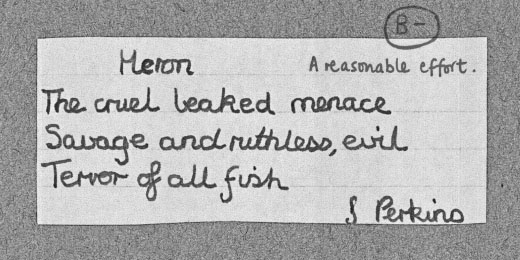 B-
Heron
A reasonable effort.
The cruel beaked menace
Savage and ruthless, evil
Terror of all fish
S Perkins